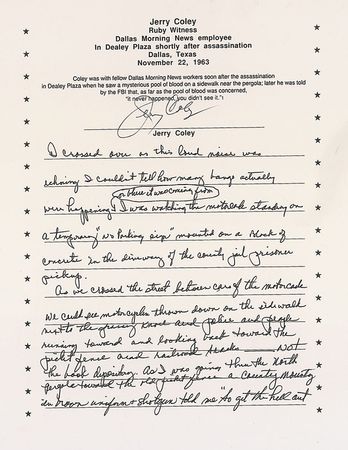 Jerry Coley
Ruby Witness
Dallas Morning News employee
In Dealey Plaza shortly after assassination
Dallas, Texas
November 22, 1963
Coley was with fellow Dallas Morning News workers soon after the assassination
in Dealey Plaza when he saw a mysterious pool of blood on a sidewalk near the pergola; later he was told
by the FBI that, as far as the pool of blood was concerned,
"it never happened, you didn't see it."
Jerry Coley
Jerry Coley
I crossed over as this loud noise was
echoing I couldn't tell how many bangs actually
or where it was coming from
were happening I was watching the motorcade standing on
a temporary "no parking sign" mounted on a block of
concrete in the driveway of the county jail prisoner
pickup.
As we crossed the street between cars of the motorcade
we could see motorcycles thrown down on the sidewalk
next to the grassy knoll and police and people
running toward and looking back toward the
picket fence and railroad tracks — NOT
the book depository. As I was going thru the north
people toward the old picket fence a County Mounty
in brown uniform & shotgun told me "to get the hell out